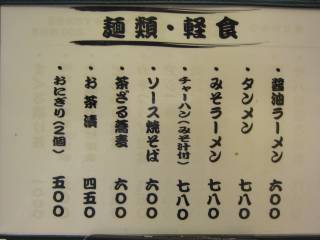 麺類・軽食
・醤油ラーメン 六〇〇
・タンメン 七八〇
・みそラーメン 七八〇
・チャーハン(みそ汁付) 七八〇
・ソース焼そば 六〇〇
・茶ざる蕎麦 六〇〇
・お茶漬 四五〇
・おにぎり(2個) 五〇〇